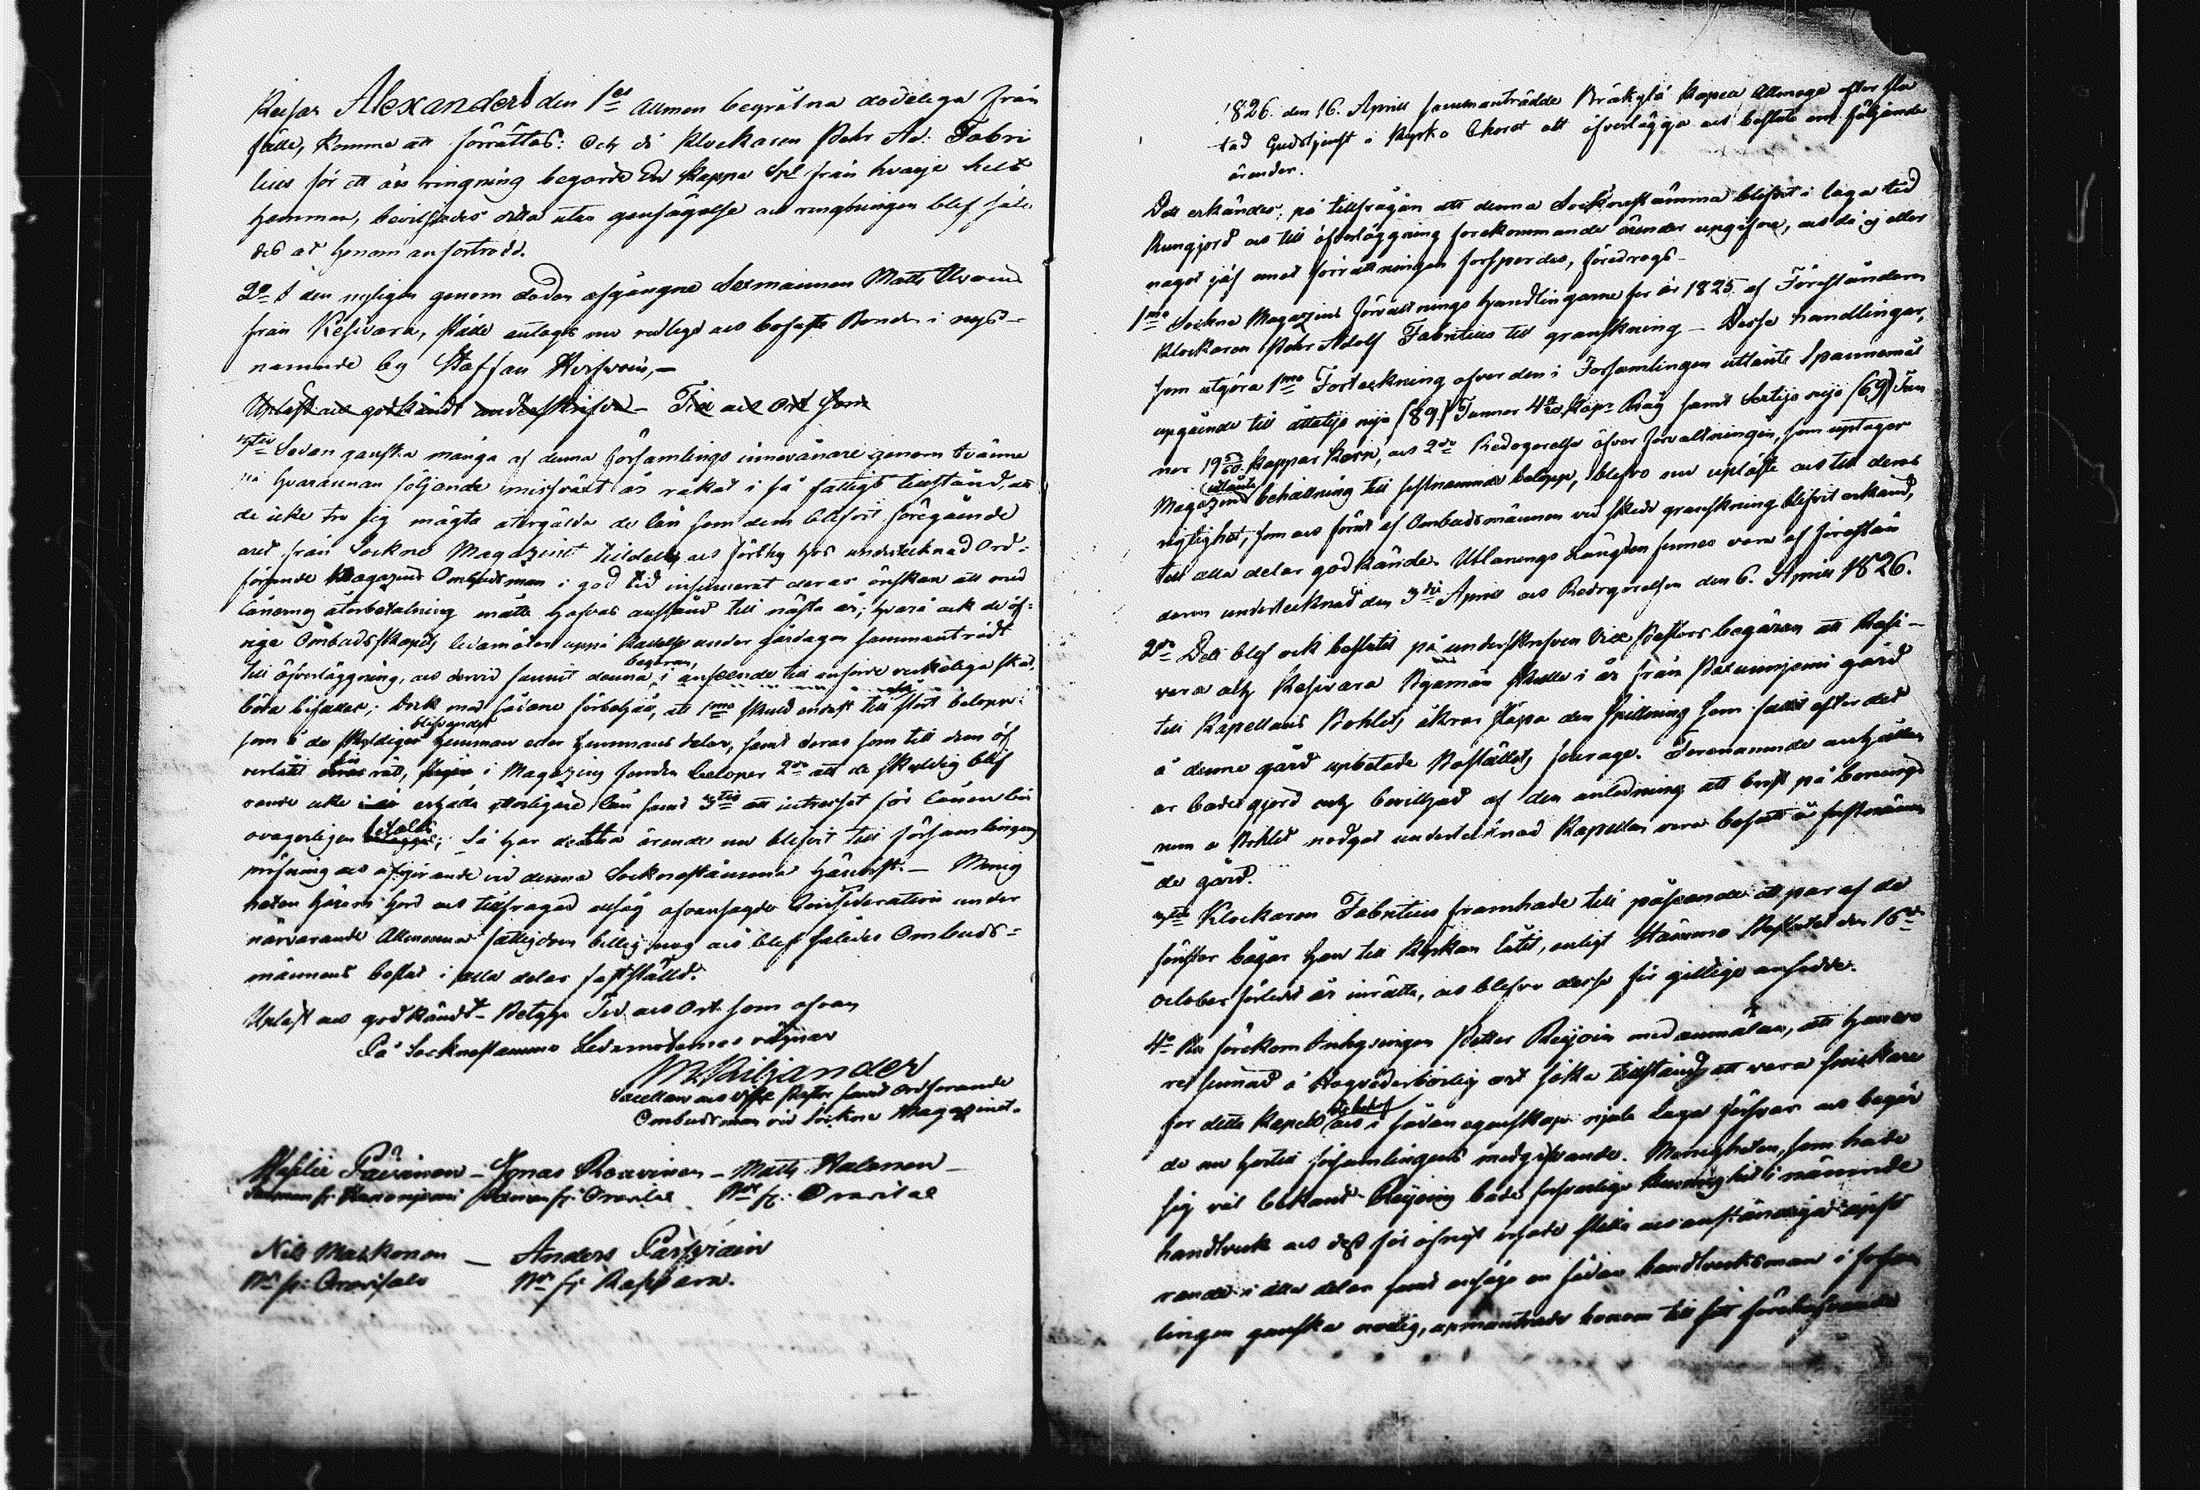 Kejsar Alexanders den 1es allmen begråtna dödeliga från
fälle, komma att förrättas: Och då Klockaren Pehr Ad: Fabri
tius för ett års ringning begärde En Kappa Spl från hvarje helt
hemman, bevilljades detta utan gensägelse och ringningen blef såle
des åt honom anförtrodd.
2o I den nyligen genom döden afgångne Sexmannen Matts
från Kesivara, ställe antages nu redlige och bofaste Bonden i nyss-
nämnde by Staffan
Upläst och godkändt underskrifves - Tid och Ort som
Sedan ganska många af denna församlings innevånare genom tvänne
på hvarannan följande missväxt år råkat i så fattigt tillstånd, att
de icke tro sig mägta återgälda de lån som dem blifvit föregående
året från Sockne Magazinet tilldelte och hos undertecknad Ord-
förande Magazins Ombudsman i god tid insinuerat deras önskan att med
lånens återbetalning måtte hafvas anstånd till nästa år; hvarå ock de öf-
rige Ombudsskapets ledamöter uppå under sammanträdt
till öfverläggning, och dervid funnit denna begäran, i anseende till anförde verkeliga skäl,
böra bifallas; Dock med sådane förbehåll, att 1mo skuld endast till stort belopp
som å de skyldiges blifvande hemman eller hemmans delar, samt deras som till dem öf
verlåtit sin råd, i Magazins fonden beloper 2do att de skyldig blif
vande icke erhålla ytterligare lån samt 3tio att intresset för lånen bör
ovägerligen betalas; Så har detta ärende nu blifvit till församlingens
pröfning och afgörande vid denna Socknestämma hänvist. - Menig
heten härom hörd och tillfrågad ansåg ofvansagde Consideration under
närvarande Allmänna fattigdom billig nog och blef således Ombuds-
männens beslut i alla delar fastställd.
Upläst och godkändt - Betyga Tid och Ort som ofvan
På Socknestämmo Ledamöternes vägnar
M. Kiljander
Sacellan och Vice Pastor samt Ordförande
Ombudsman vid Sockne Magazinet.
Påivinen - Jonas Roavinen - Matts Halonen -
Sexman fr. sexman fr. Oravisalo Bde fr: Oravisalo
Nils Maekonen - Anders Parsviain
Bde fr: Oravisalo Bde fr Rasivara.
1826. den 16. April sammanträdde Bräkylä Kapell Allmoge efter slu
tad Gudstjenst i Kyrko Choret att öfverlägga och besluta om följande
ärender.
Det erkändes, på tillfrågan att denna Sockne stämma blifvit i laga tid
kungjord och till öfverläggning förekommande ärender upgifne, och då ej eller
något jäf emot förrättningen förspordes, föredrogs
1mo Sockne Magazins förvaltnings handlingarne för år 1825 af Föreståndaren
Klockaren Pehr Adolf Fabritius till granskning - Desse handlingar,
som utgöra 1mo Förteckning öfver den i Församlingen utlånte Spannemål
upgående till åttatijo nijo (89) Tunnor Kapr Råg samt Sextijo nijo (69) Tun
nor Kappar Korn, och 2do Redogörelse öfver förvaltningen, som uptager
Magazins utlånte behållning till sistnämnde belopp, blefvo nu upläste och till deras
rigtighet, som och förut af Ombudsmännen vid skedd granskning blifvit erkänd,
till alla delar godkände. Utlånings Längden finnes vara af Förestån
daren undertecknad den 3die April och Redogörelsen den 6. April 1826.
2do Det blef ock beslutit på underskrefven Vice Pastors begäran att Rasi-
vara och Kesivara Byamän skulle i år från gård
till Kapellans Bohlets åkrar släpa den spillning som fallit efter det
å denne gård upbetade Boställets fourage. Förenämnde anhållan
är både gjord och bevilljad af den anledning att brist på bonings
rum å Bohlet nödgat undertecknad Kapellan vara bosatt å sistnämn
de gård.
3tio Klockaren Fabritius framhade till påseende ett par af de
fönster bågar han till Kyrkan låtit, enligt Stämmo Beslutet den 16de
October förledit år inrätta, och blefvo desse för gilltige ansedde.
4o Nu förekom Inhysingen Petter Reijoin med anmälan, att han vo
ret sinnad å Högvederbörlig ort söka tillstånd att vara snickare
för detta Kapells behof och i sådan egenskap njuta laga försvar och begär
de nu hertill församlingens medgifvande. Menigheten, som hade
sig väl bekant Reijoins både försvarliga kunnighet i nämnde
handtverk och dess för öfrigt städse flit och anständiga upfö
rande i alla delar samt ansåg en sådan handtverksman i försam
lingen ganska nödig, upmuntrade honom till sitt förehafvande